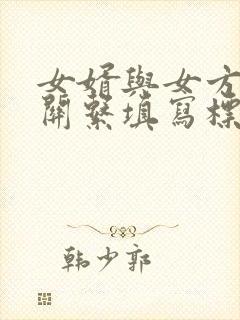 女婿與女方
關繫填寫標
韩少郭